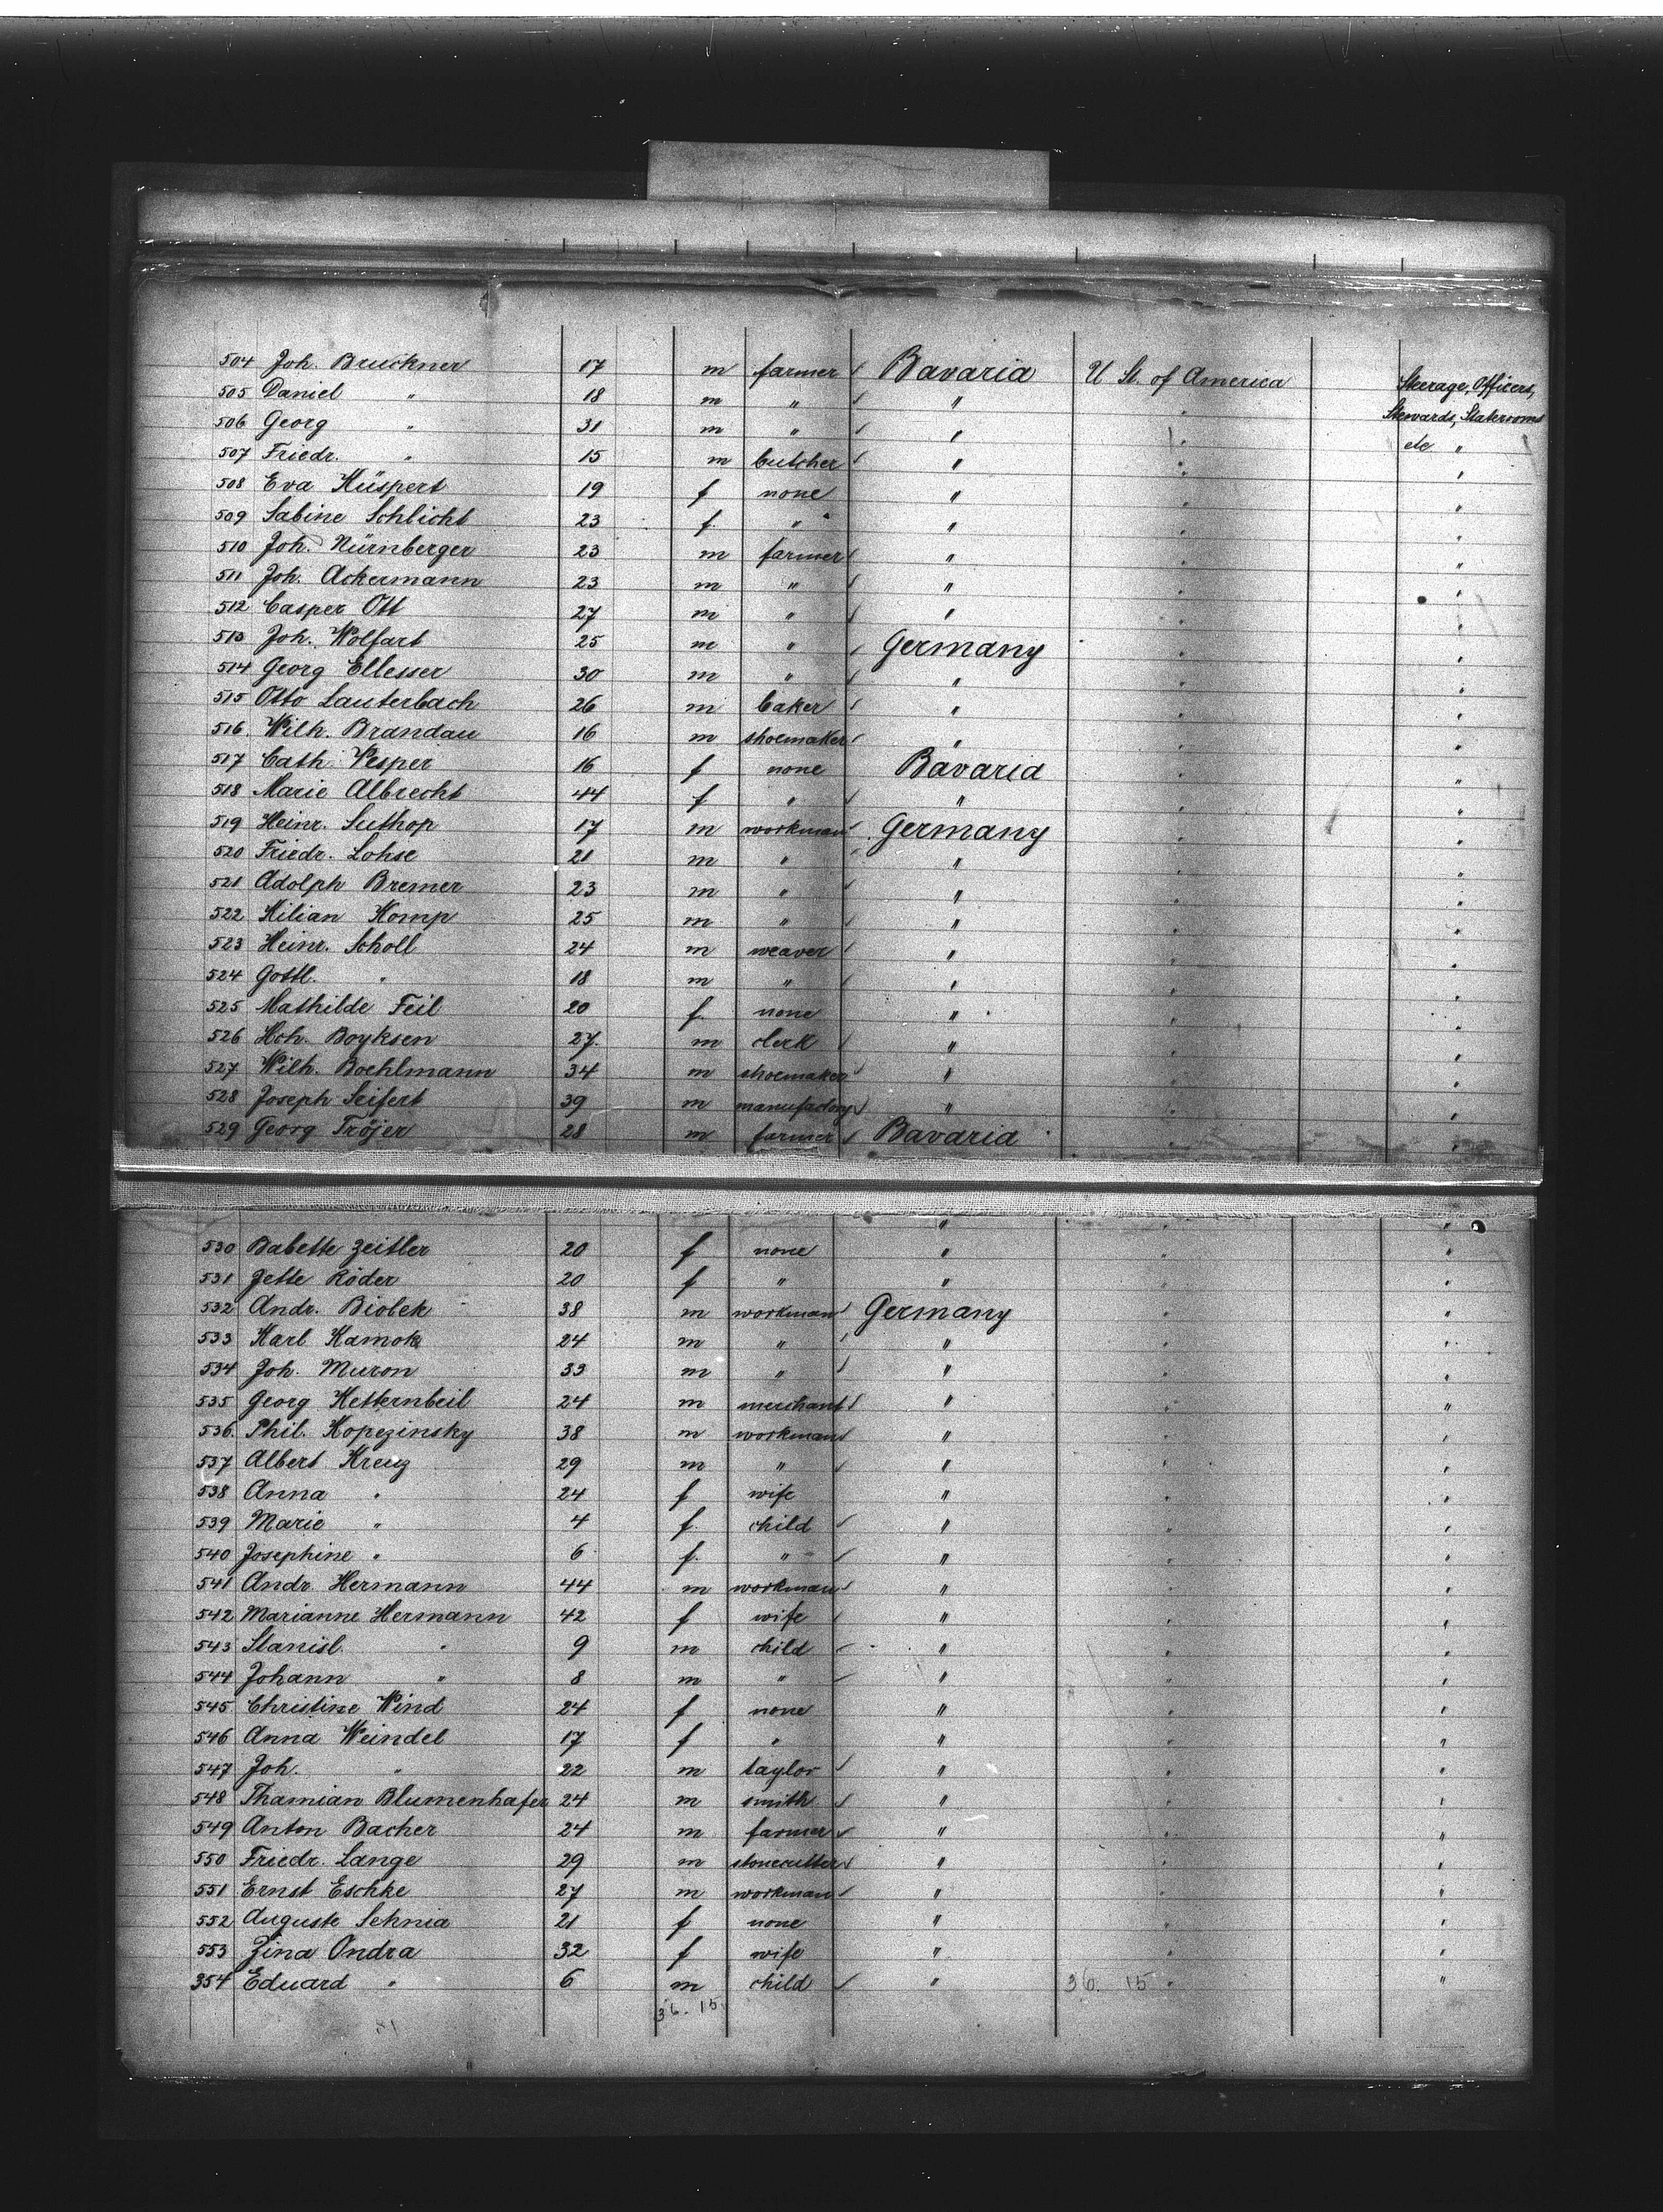 504 Joh. Bruckner 17 m farmer Bavaria U St. of America Steerage, Officers,
505 Daniel " 18 m " " " Stewards, Staterooms
506 Georg " 31 m " " " etc "
507 Friedr. " 15 m butcher " " "
508 Eva Küspert 19 f none " " "
509 Sabine Schlicht 23 f. " " " "
510 Joh. Nürnberger 23 m farmer " " "
511 Joh. Ackermann 23 m " " " "
512 Casper Ott 27 m " " " "
513 Joh. Wolfart 25 m " Germany " "
514 Georg Ellesser 30 m " " " "
515 Otto Lauterbach 26 m baker " " "
516. Wilh. Brandau 16 m shoemaker " " "
517 Cath. Vesper 16 f none Bavaria " "
518 Marie Albrecht 44 f " " " "
519 Heinr. Suthop 17 m workman Germany " "
520 Friedr. Lohse 21 m " " " "
521 Adolph Bremer 23 m " " " "
522 Kilian Komp 25 m " " " "
523 Heinr. Scholl 24 m weaver " " "
524 Gottl. " 18 m " " " "
525 Mathilde Feil 20 f. none " " "
526 Hch. Boyksen 27. m clerk " " "
527 Wilh. Boehlmann 34 m shoemaker " " "
528 Joseph Seifert 39 m manufactory " " "
529 Georg Tröjer 28 m farmer Bavaria " "
530 Babette Zeitler 20 f none " " "
531 Jette Röder 20 f " " " "
532 Andr. Biobek 38 m workman Germany " "
533 Karl Kamok 24 m " " " "
534 Joh. Muron 33 m " " " "
535 Georg Ketternbeil 24 m merchant " " "
536. Phil. Kopezinsky 38 m workman " " "
537 Albert Kreuz 29 m " " " "
538 Anna " 24 f wife " " "
539 Marie " 4 f. child " " "
540 Josephine " 6 f. " " " "
541 Andr. Hermann 44 m workman " " "
542 Marianne Hermann 42 f wife " " "
543 Stanisl. " 9 m child " " "
544 Johann " 8 m " " " "
545 Christine Wind 24 f none " " "
546 Anna Weindel 17 f " " " "
547 Joh. " 22 m taylor " " "
548 Thamian Blumenhafer 24 m smith " " "
549 Anton Bacher 24 m farmer " " "
550 Friedr. Lange 29 m stonecutter " " "
551 Ernst Eschke 27 m workman " " "
552 Auguste Sehnia 21 f none " " "
553 Zina Ondra 32 f wife " " "
354 Eduard " 6 m child " 36. 15 " "
36. 15